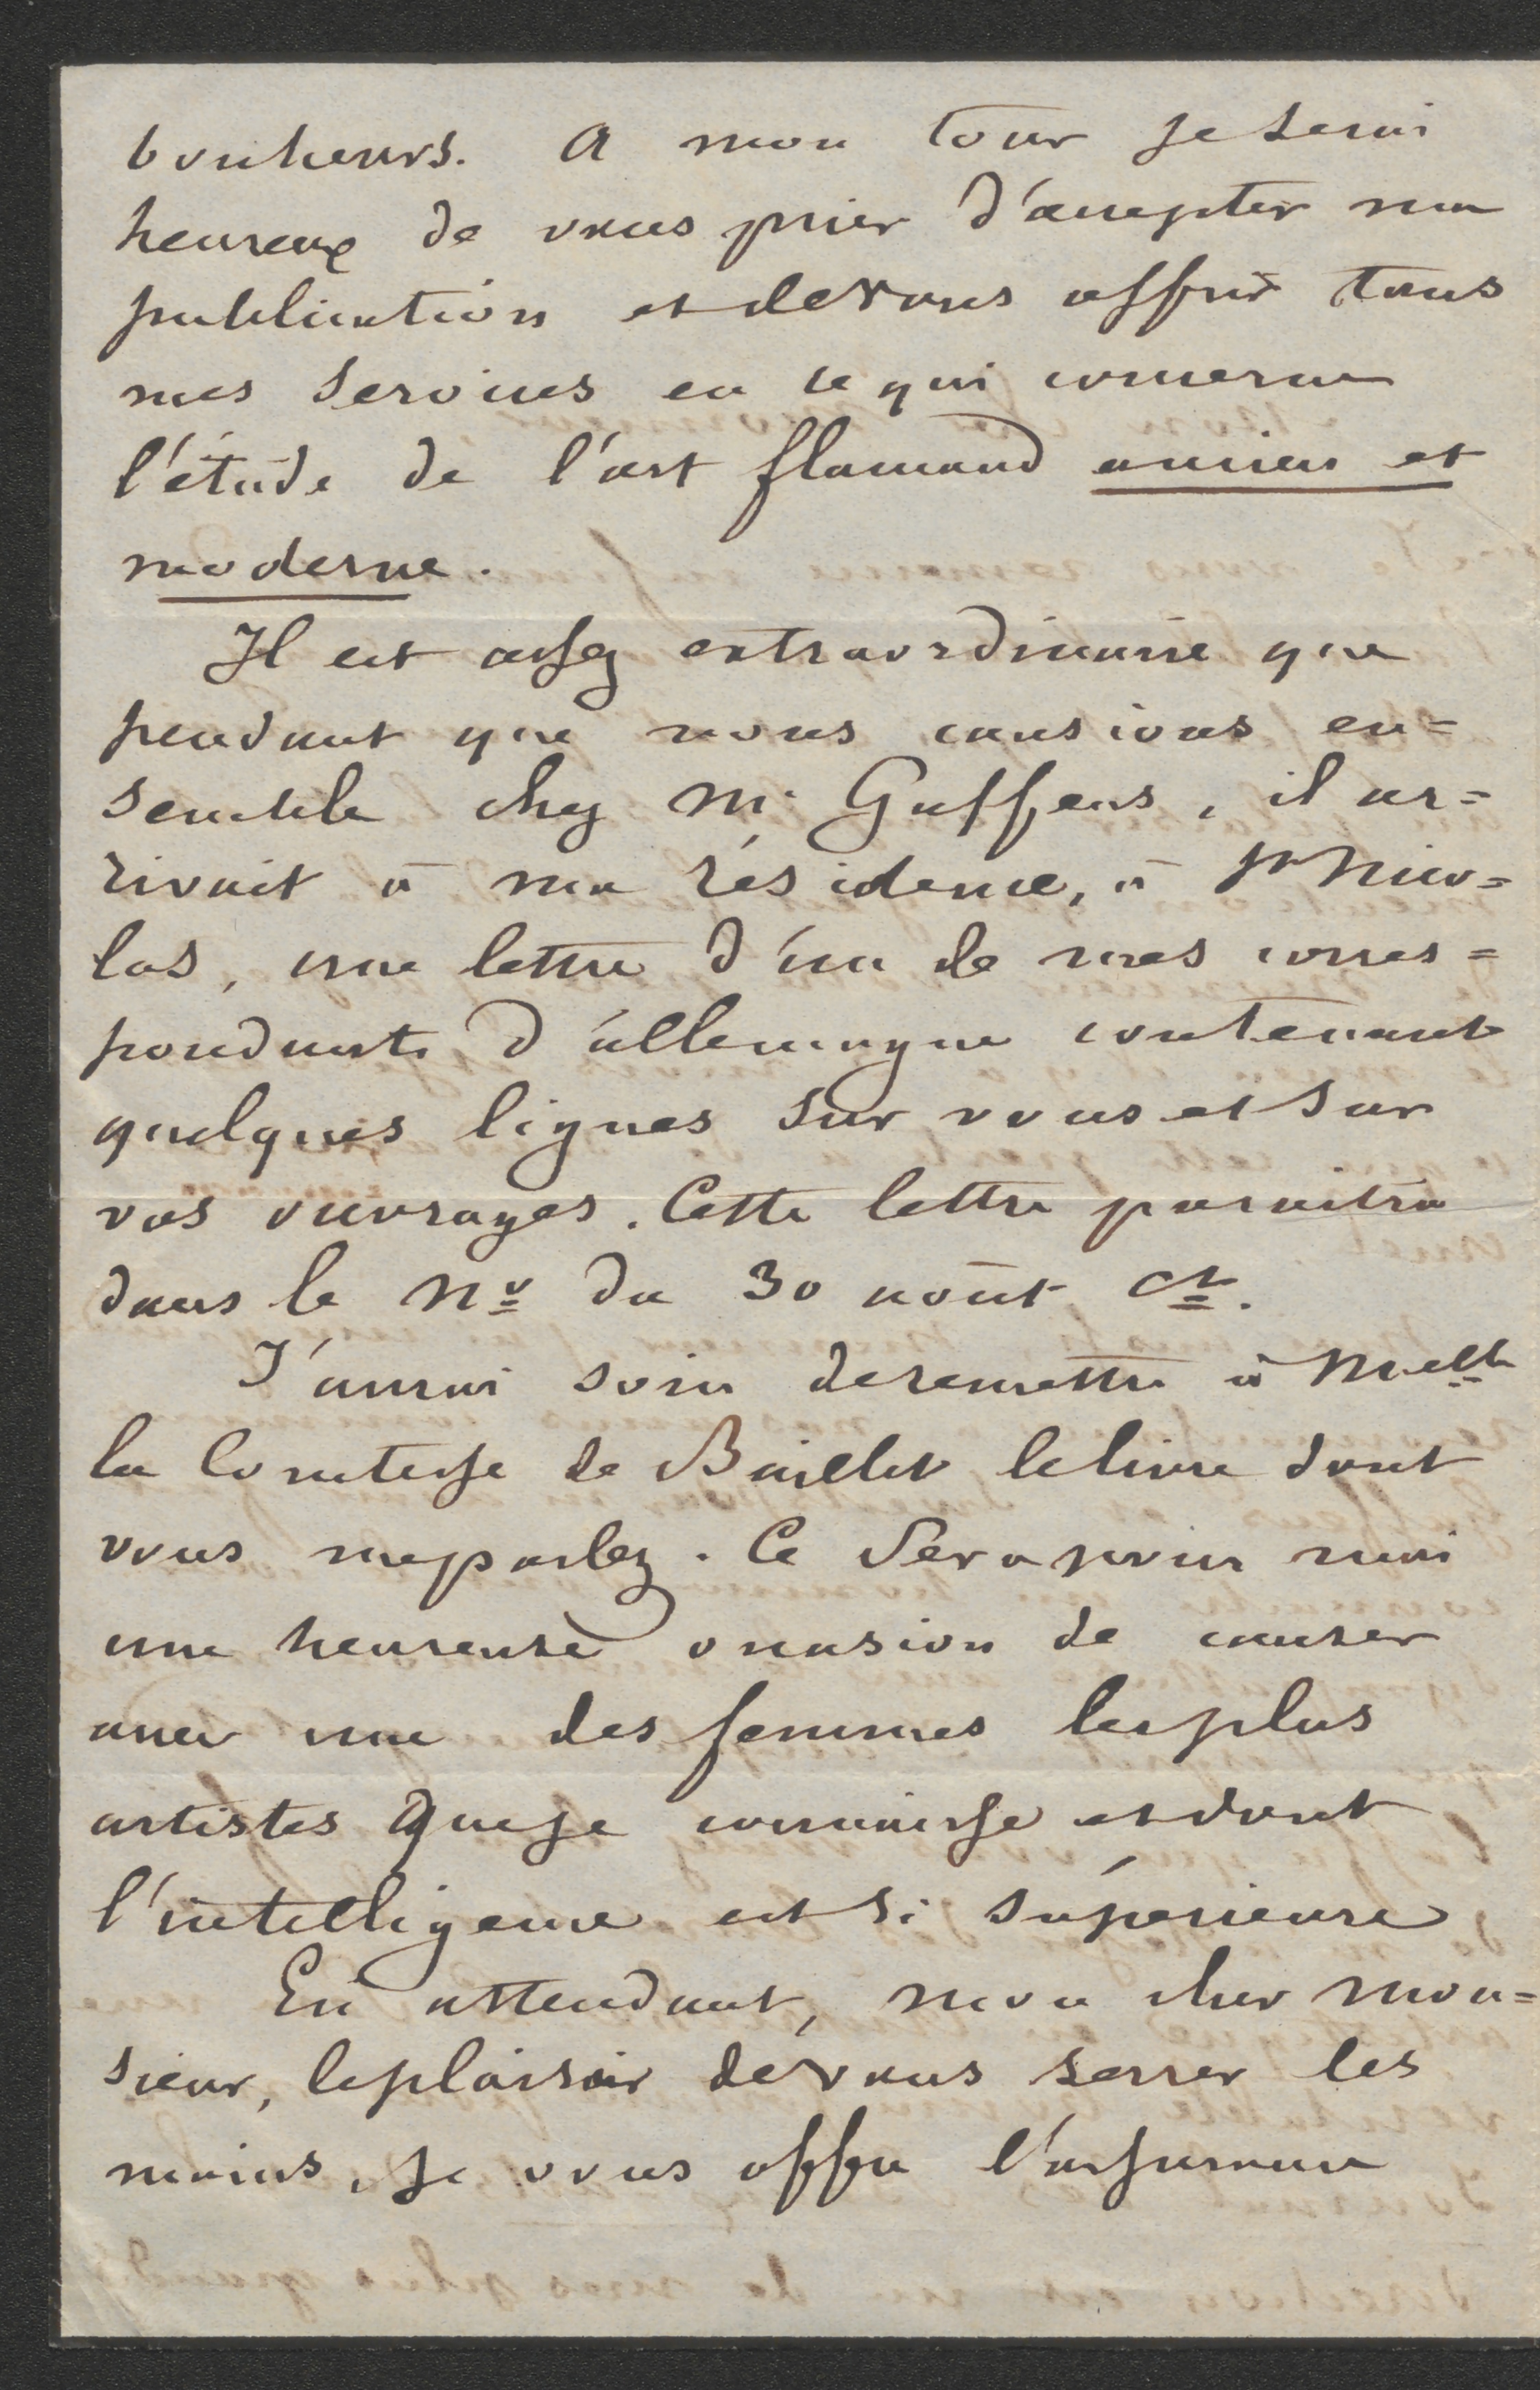 bonheurs. A mon tour je serai
heureux de vous prier d'accepter ma
publication et de vous offrir tous
mes services en ce qui concerne
l'étude de l'art flamand ancien et
moderne.
Il est assez extraordinaire que
pendant que nous causions en=
semble chez Mr Guffens, il ar=
rivait à ma résidence, à St Nico=
las, une lettre d'un de mes corres=
pondants d'Allemagne contenant
quelques lignes sur vous et sur
vos ouvrages. Cette lettre paraitra
dans le No du 30 août ct.
J'aurai soin de remettre à Melle
la Comtesse de Baillet le livre dont
vous me parlez. Ce sera pour moi
une heureuse occasion de causer
avec une des femmes les plus
artistes que je connaisse et dont
l'intelligence est si supérieure
En attendant, mon cher Mon=
sieur, le plaisir de vous serrer les
mains, je vous offre l'assurance